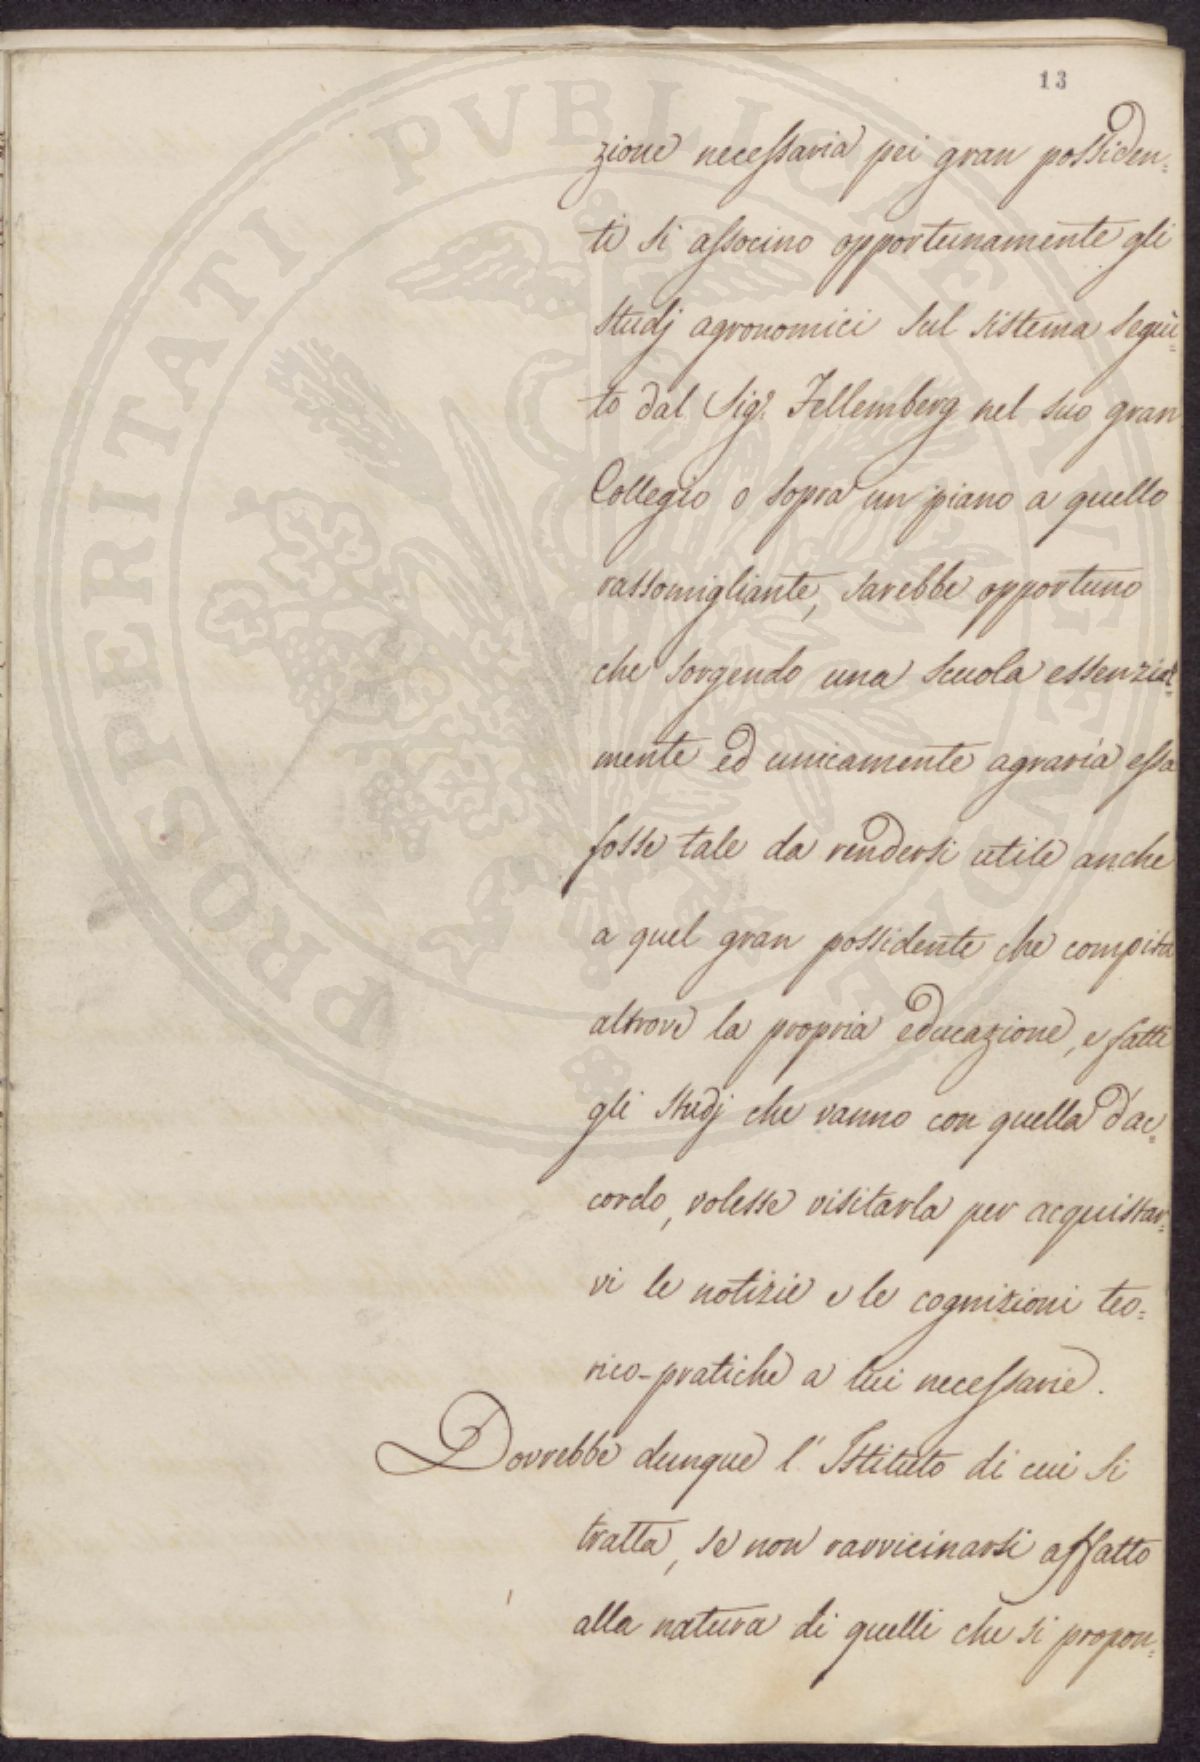 13
zione necessaria pei gran possiden=
ti si associno opportunamente gli
studj agronomici sul sistema segui=
to dal Sig.r Fellemberg nel suo gran
Collegio o sopra un piano a quello
rassomigliante, sarebbe opportuno
che sorgendo una scuola essenzial=
mente ed unicamente agraria essa
fosse tale da rendersi utile anche
a quel gran possidente che compita
altrove la propria educazione, e fatti
gli studj che vanno con quella d'ac=
cordo, volesse visitarla per acquistar=
vi le notizie e le cognizioni teo=
rico-pratiche a lui necessarie.
Dovrebbe dunque l'Istituto di cui si
tratta, se non ravvicinarsi affatto
alla natura di quelli che si propon=
PROSPERITATI PVBLICAE AVGENDAE